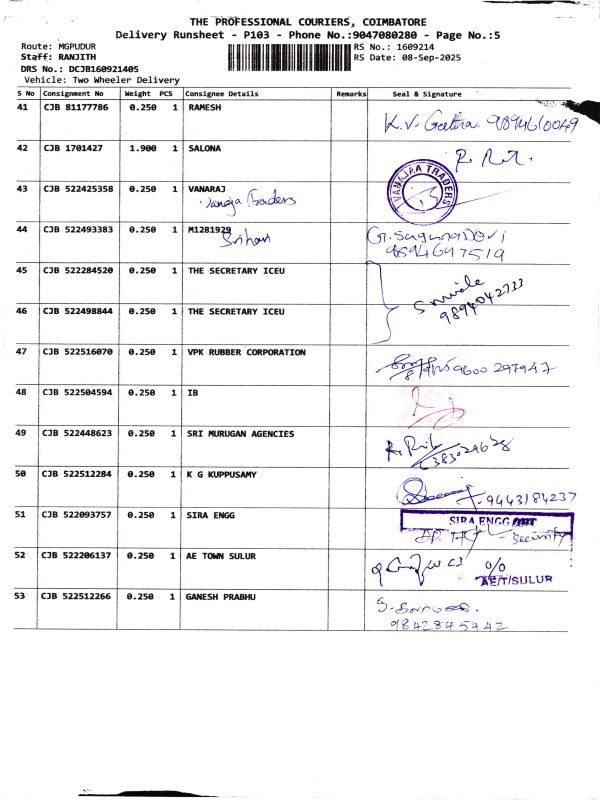 THE PROFESSIONAL COURIERS, COIMBATORE
Delivery Runsheet - P103 - Phone No.:9047080280 - Page No.:5
Route: MGPUDUR RS No.: 1609214
Staff: RANJITH RS Date: 08-Sep-2025
DRS No.: DCJB160921405
Vehicle: Two Wheeler Delivery
S No Consignment No Weight PCS Consignee Details Remarks Seal & Signature
41 CJB 81177786 0.250 1 RAMESH
K.V. Geetha. 9894610049
42 CJB 1701427 1.900 1 SALONA
43 CJB 522425358 0.250 1 VANARAJ
Vanaja Traders
VANAJAA TRADERS
44 CJB 522493383 0.250 1 M1281929
G. Suguna Devi
9894697519
45 CJB 522284520 0.250 1 THE SECRETARY ICEU
9894042733
46 CJB 522498844 0.250 1 THE SECRETARY ICEU
47 CJB 522516070 0.250 1 VPK RUBBER CORPORATION
9600 297947
48 CJB 522504594 0.250 1 IB
49 CJB 522448623 0.250 1 SRI MURUGAN AGENCIES
50 CJB 522512284 0.250 1 K G KUPPUSAMY
9443184237
51 CJB 522093757 0.250 1 SIRA ENGG
SIRA ENGG
Security
52 CJB 522206137 0.250 1 AE TOWN SULUR
O/O
AE/T/SULUR
53 CJB 522512266 0.250 1 GANESH PRABHU
9842845442